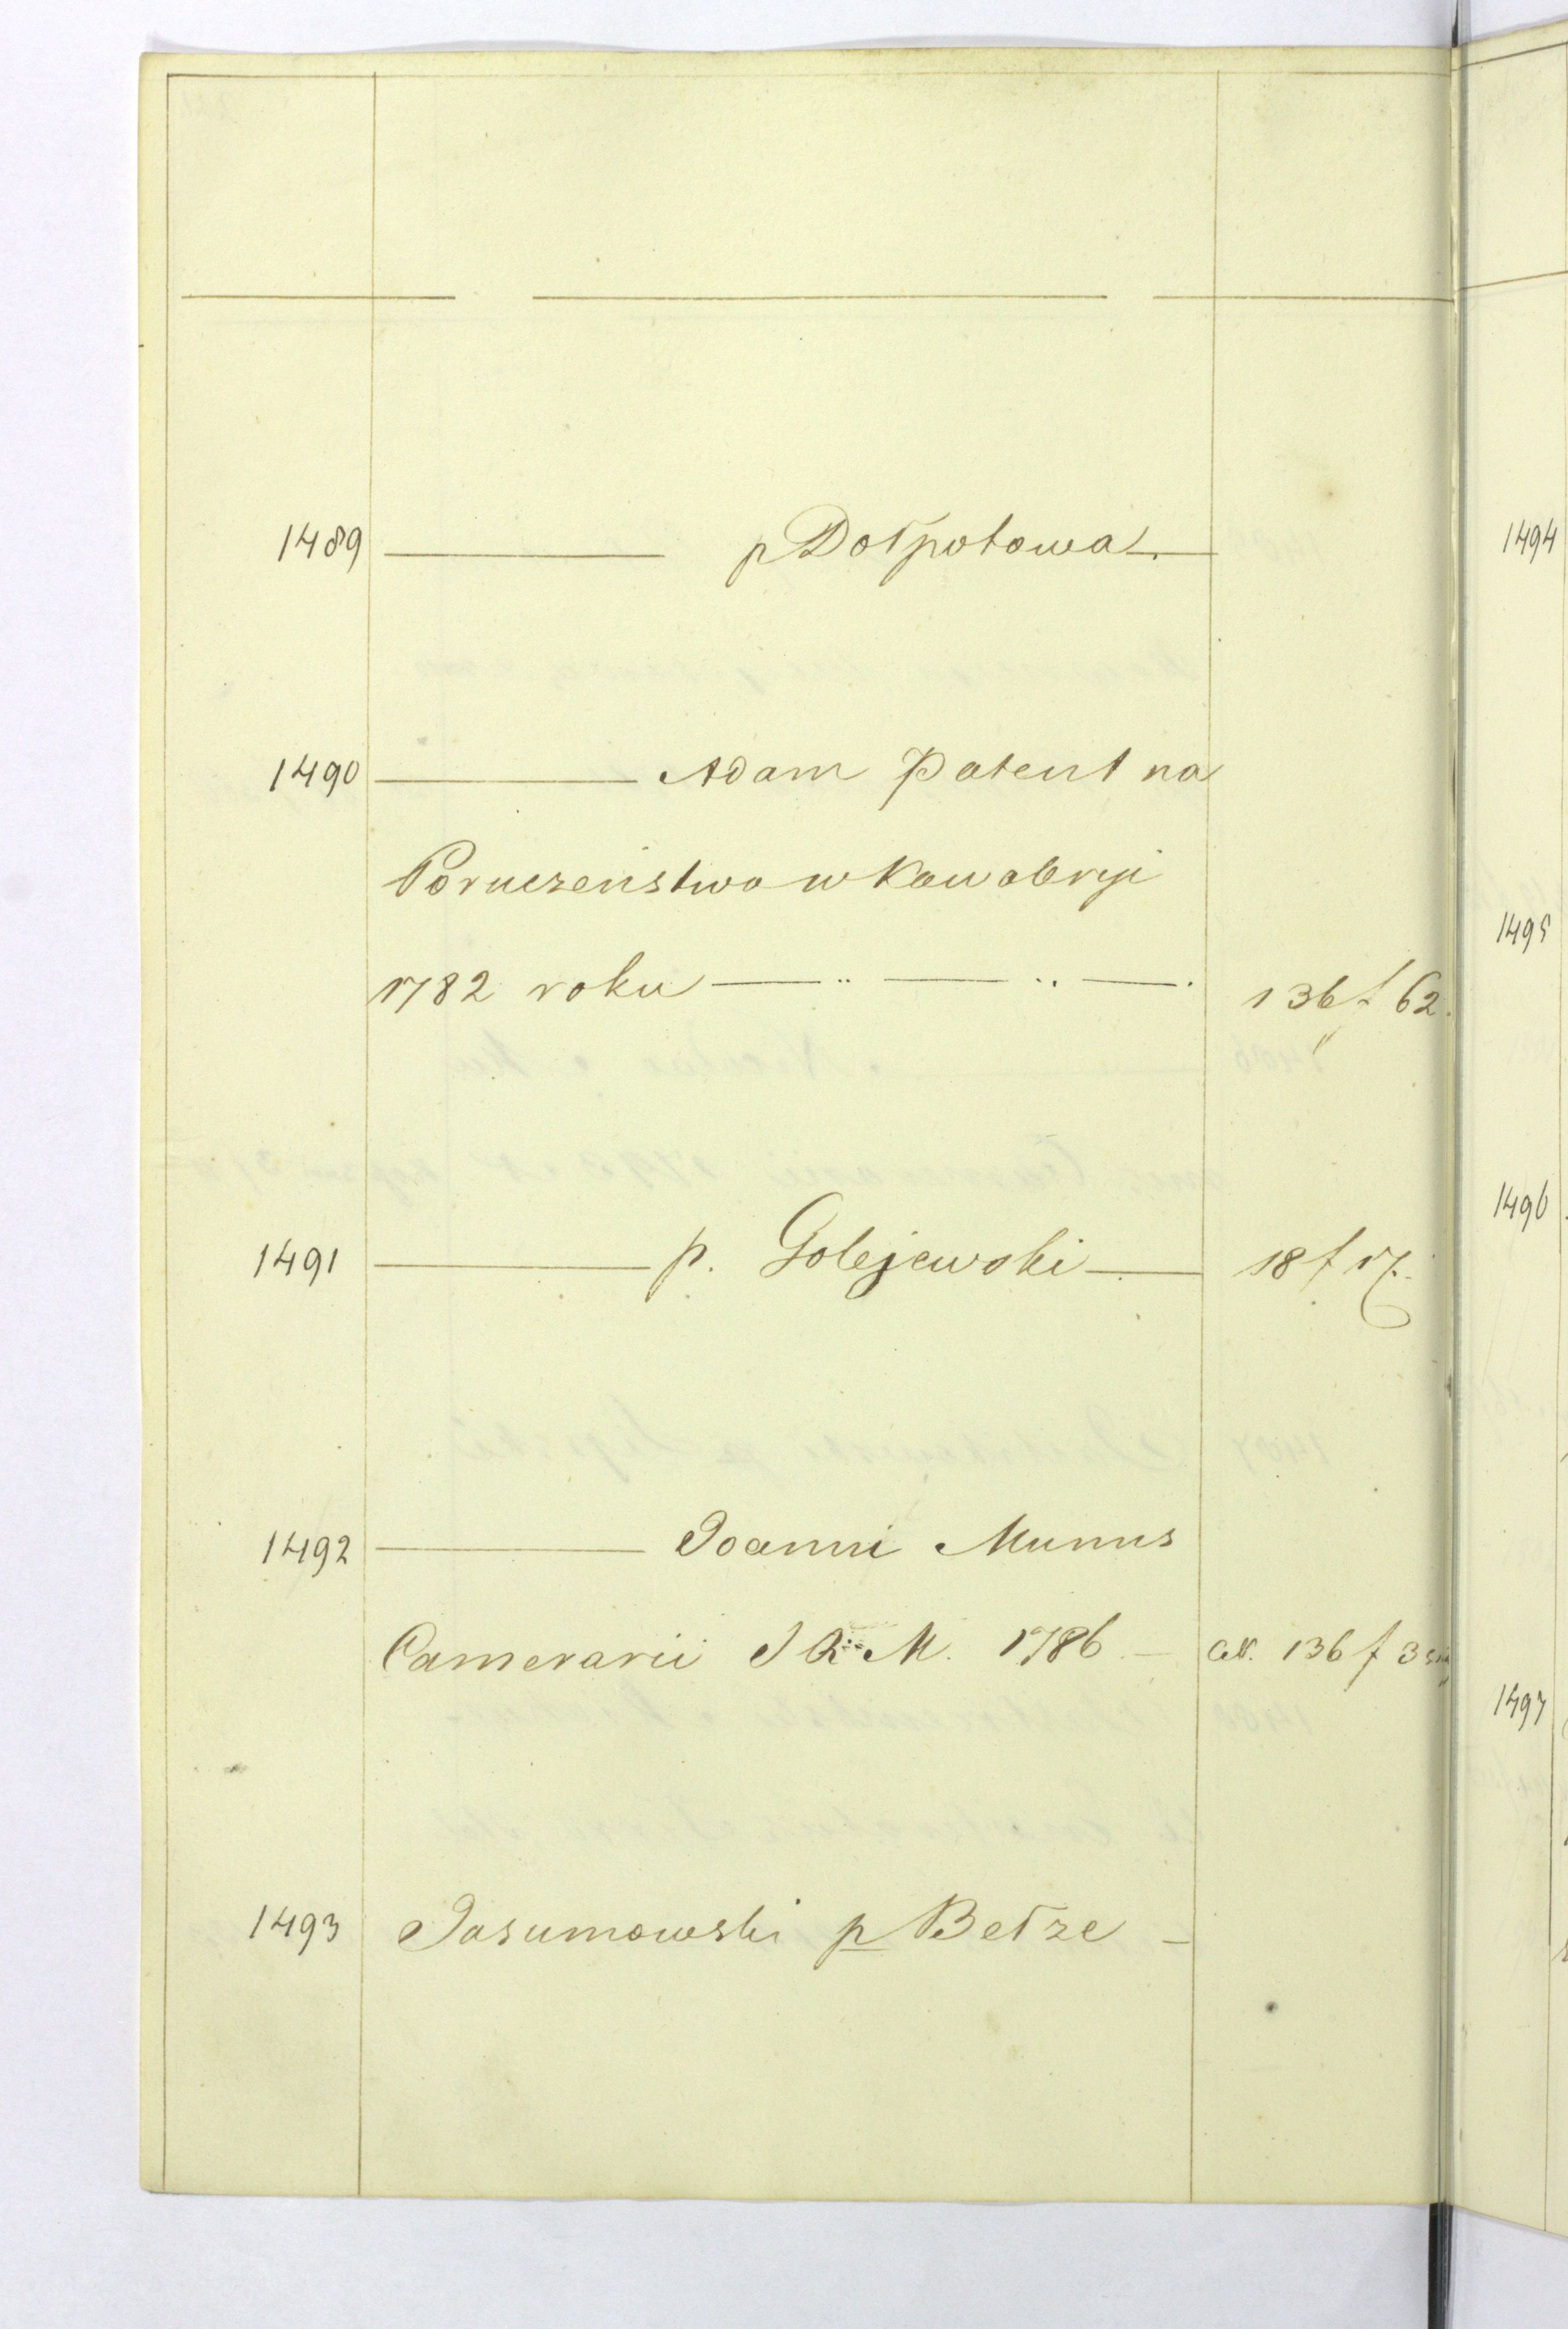 1489 ——— p Dołpotowa.—
1490 ——— Adam Patent na
Poruczeństwo w Kawaleryi
1782 roku — .. — .. — . 136 f 62.
1491 ——— p. Golejewski — 18 f 17.
1492 ——— Joanni Munus
Camerarii J K M. 1786. — 136 f 3
1493 Jasumowski p Bełze —
1494
1495
1496
1497